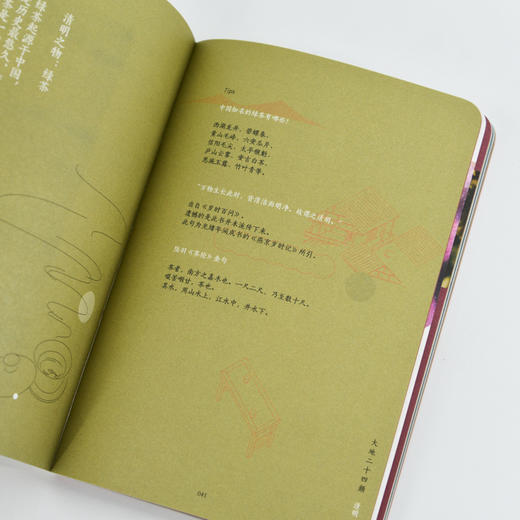 清明之物：绿茶
绿茶起源于中国，
历史最悠久，
Tips
中国知名的绿茶有哪些？
西湖龙井、碧螺春、
黄山毛峰、六安瓜片、
信阳毛尖、太平猴魁、
庐山云雾、安吉白茶、
恩施玉露、竹叶青等。
“万物生长此时，皆清洁而明净，故谓之清明。”
出自《岁时百问》。
遗憾的是此书并未流传下来。
此句为光绪年间成书的《燕京岁时记》所引。
陆羽《茶经》金句
茶者，南方之嘉木也。一尺二尺，乃至数十尺。
啜苦咽甘，茶也。
其水，用山水上，江水中，井水下。
041
大地二十四颜
清明